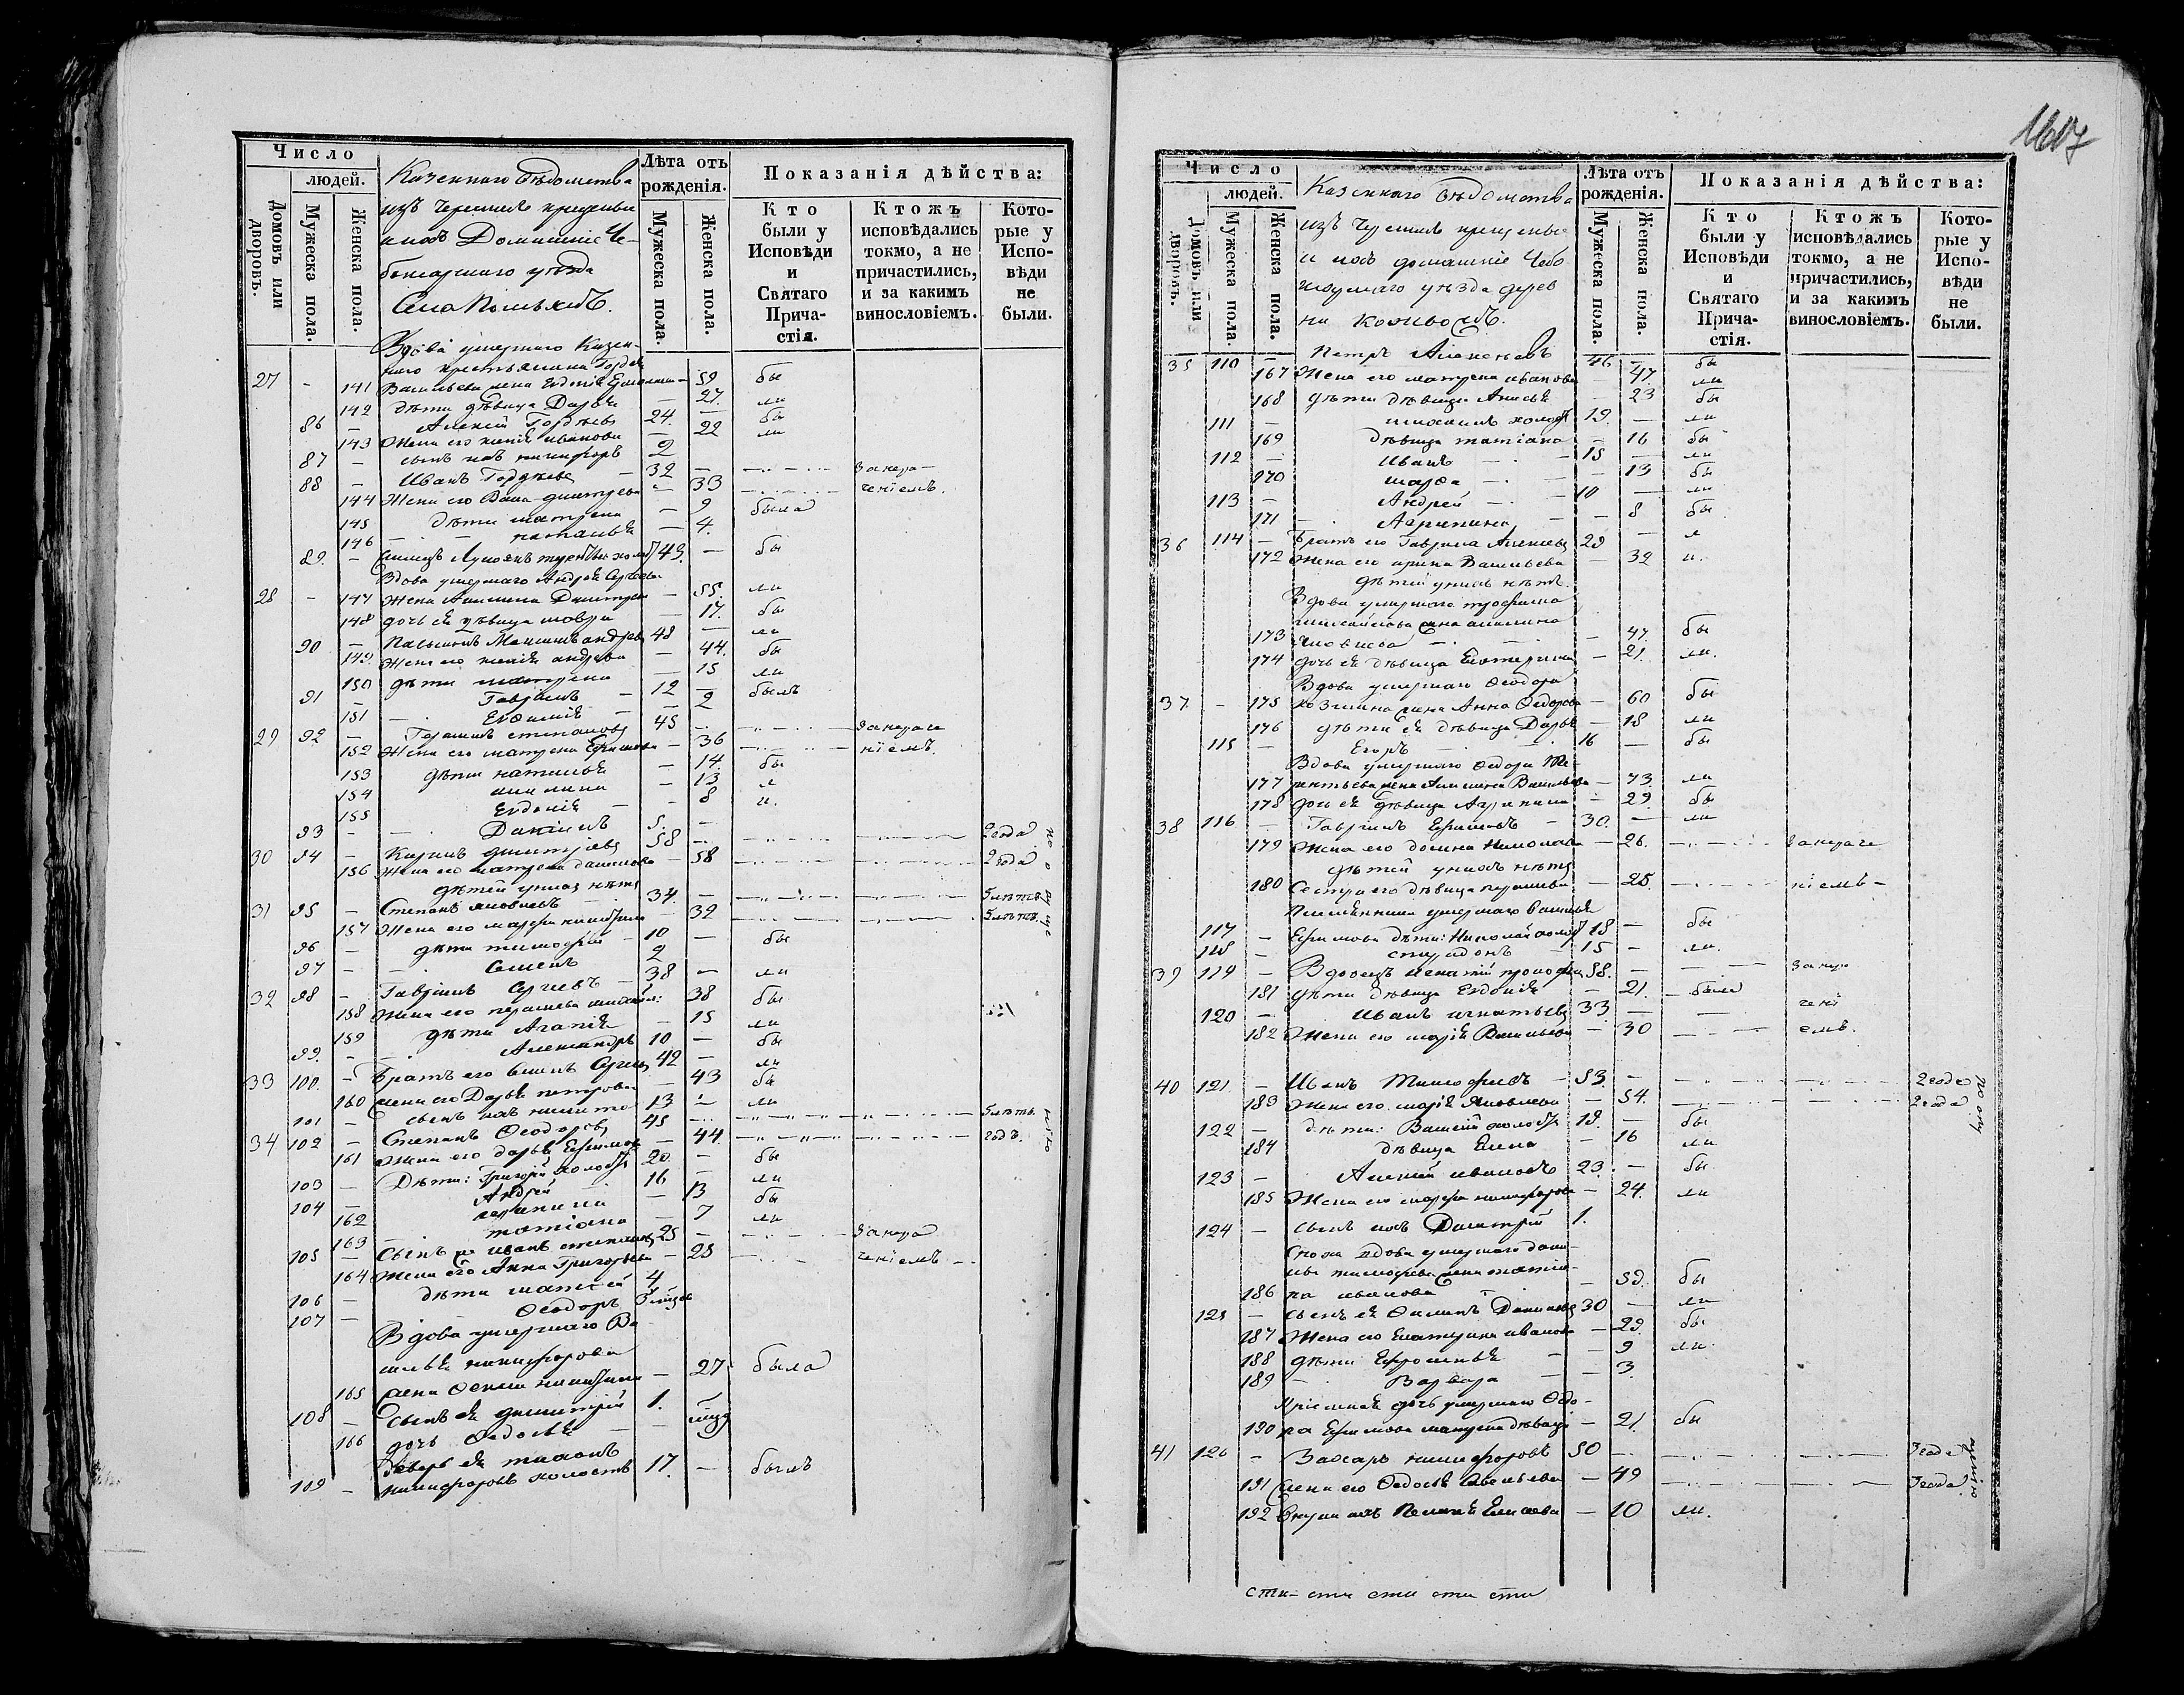 Число
людей.
Домовъ или дворовъ.
Мужеска пола.
Женска пола.
Казеннаго Вѣдомства
изъ Черемисъ крещены
ихъ Домашніе Че-
боксарскаго уѣзда
Лѣта отъ
рожденія.
Мужеска пола.
Женска пола.
Показанія дѣйства:
Кто
были у
Исповѣди
и
Святаго
Прича-
стія.
Ктожъ
исповѣдались
токмо, а не
причастились,
и за какимъ
винословіемъ.
Кото-
рые у
Испо-
вѣди
не
были.
Вдова умершаго Казен-
наго крестьянина Гордея
27 - 141 Васильева жена Евдокія - 59 бы
142 дѣти дѣвица Дарья - 27. ли
86 - Алексѣй Гордѣевъ 24. - бы
143 Жена его Ксенія Иванова - 22 ли
87 - сынъ ихъ Никифоръ 2
88 - Иванъ Гордѣевъ - 32 - Занера-
144 Жена его Васса Дмитріева - 33 ченіемъ.
145 дѣти Матрена - 9 была
146 - Наталья - 4.
89. - 43. - бы
Вдова умершаго Андрея Сергѣева
28 - 147 Жена Акилина Дмитріева - 55. ли
148 дочь ея дѣвица Мавра - 17. бы
90 - Пасынокъ Максимъ Андреевъ 48 - ли
149. Жена его Ксенія Андреева - 44. бы
150 дѣти Матрена - 15 ли
91 - Гавріилъ - 12 - былъ
151 - Евдокія - - 2
29 92 - Герасимъ Степановъ 45 - Занераче
152 Жена его Матрена Ефимова - 36 ніемъ.
153 дѣти Наталья - 14. бы
154 Акилина - 13 л
155 Евдокія - - 8 и.
93 - - Даніилъ 5. -
30 94 - Кирилъ Дмитріевъ 58 - 2 года
156 Жена его Матрена Данилова - 58 2 года
дѣтей у нихъ нѣтъ
31 95 - Степанъ Яковлевъ - 34. - 5 лѣтъ
157 Жена его Марфа - 32 5 лѣтъ.
96 - дѣти Тимофей - 10 - бы
97 - - Семенъ 2
32 98 - Гавріилъ Сергѣевъ - 38 - ли
158 Жена его Пераскева - 38 бы
159 дѣти Агапія - 15 ли
99. - - Александръ 10 - бы
33 100. - Братъ его Сергѣевъ 42 - ли
160 Жена его Дарья Петрова - 43 бы
101 - сынъ ихъ Никита 13 - ли
34 102 - Степанъ Ѳеодоровъ 45 - 5 лѣтъ.
161 Жена его Дарья Ефимова - 44. годъ.
103 - Дѣти: Григорій холостъ 20. - бы
104 - Андрей - 16 - ли
162 - 13 бы
163 - Татіана - 7 ли
105 - Сынъ его Иванъ Степановъ 25 - Занера
164 Жена его Анна Григорьева - 25 ченіемъ -
106 - дѣти Матѳей 4
107 - Ѳеодоръ
Вдова умершаго Ва
силья Никифорова
165 жена - 27 была
108 - Сынъ ея Димитрій 1.
166 дочь Ѳедосья -
деверь ея
109 - Никифоровъ холостъ 17. - былъ
1617
Число
людей.
Домовъ или дворовъ.
Мужеска пола.
Женска пола.
Казеннаго Вѣдомства
изъ Черемисъ крещены
и ихъ домашніе Чебо
ксарскаго уѣзда дерев
ни
Лѣта отъ
рожденія.
Мужеска пола.
Женска пола.
Показанія дѣйства:
Кто
были у
Исповѣди
и
Святаго
Прича-
стія.
Ктожъ
исповѣдались
токмо, а не
причастились,
и за какимъ
винословіемъ.
Кото-
рые у
Испо-
вѣди
не
были.
35 110 - Петръ Алексѣевъ 46 - бы
167 Жена его Матрена Иванова - 47. ли
168 дѣти дѣвица Анисья - 23 бы
111 - холостъ 19. - ли
169 дѣвица Татіана - 16 бы
112 - Иванъ - 15 - ли
170 Марѳа - - 13 бы
113 - Андрей - 10 - ли
171 - Агрипина - - 8 бы.
36 114 - Братъ его Гаврила Алексѣевъ 29 - л
172 Жена его Ирина Васильева - 32 и.
дѣтей у нихъ нѣтъ.
Вдова умершаго Трофима
173 Яковлева - 47. бы
174 дочь ея дѣвица Екатерина - 21. ли.
Вдова умершаго Ѳеодора
37. - 175 Козмина жена Анна Ѳедорова - 60 бы
176 дѣти ея дѣвица Дарья - 18 ли
115 - Егоръ - 16 - бы
Вдова умершаго Ѳедора Те-
177 рентьева жена Акилина Васильева - 73. ли
178 дочь ея дѣвица Агрипина - 29 бы
38 116 - Гавріилъ Ефимовъ - 30. - ли
179 Жена его Домна Николаева - 26. Занераче
дѣтей у нихъ нѣтъ
180 Сестра его дѣвица Пераскева - 25. ніемъ -
Племянники умершаго Василья
117 - Ефимова дѣти: Николай холостъ 18 - бы
118 - Спиридонъ - 15 - ли.
39 119 - Вдовецъ Игнатій Прокофьевъ 58. - Занера
181 дѣти дѣвица Евдокія - 21. - была
120 - Иванъ Игнатьевъ 33. - чені
182 Жена его Марія Васильева - 30 емъ.
40 121. - Иванъ Тимофеевъ - 53. - 2 года
183 Жена его Марія Яковлева - 54. 2 года
122 - дѣти: Василій холостъ 19. - бы
184 дѣвица Елена - 16 ли
123 - Алексѣй Ивановъ 23. - бы
185 Жена его Марфа Никифорова - 24. ли
124 - сынъ ихъ Дмитрій 1.
Сноха вдова умершаго Дани-
лы Тимофеева жена Татіа-
186 на Иванова - 59. бы
125 - сынъ ея Филипъ Даниловъ 30 - ли
187 Жена его Екатерина Иванова - 29. бы
188 дѣти Ефросинья - - 9 ли.
189 - Варвара - - 3.
Пріемная дочь умершаго Ѳедо-
190 ра Ефимова дѣвица - 21. бы
41 126 - Захаръ Никифоровъ 50 - 3 года
191 Жена его Ѳедосья Савельева - 49 3 года
192 Внука ихъ Пелагея Елисеева - 10 ли.
сти- сти сти сти сти